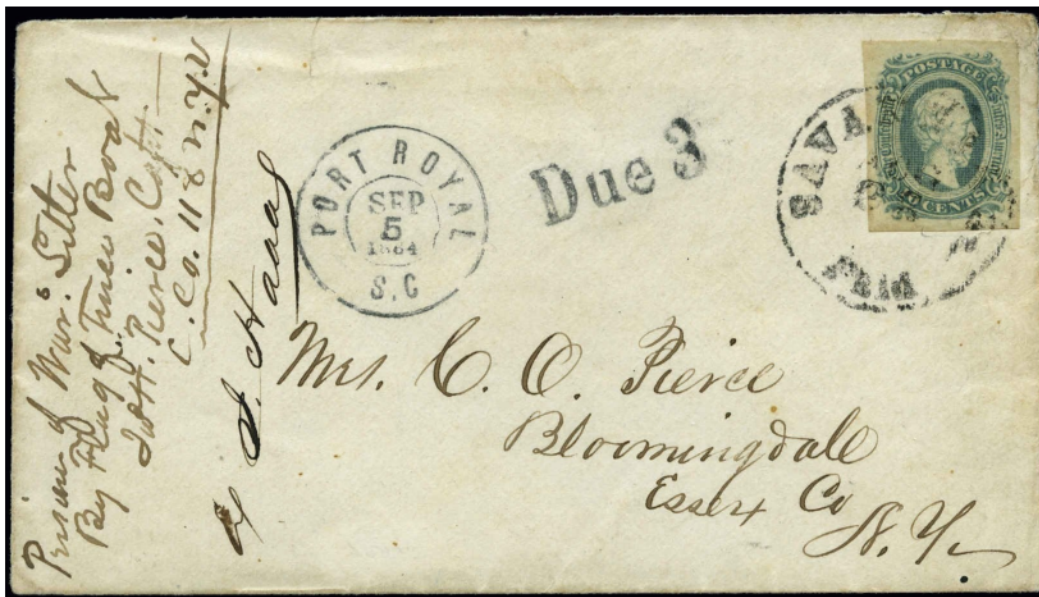 Prisoner of War's Letter
By Flag of Truce Boat
Pierce, Capt.
C. Co. 118 N.Y.V
PORT ROYAL
SEP
5
1864
S.C
Due 3
SAVA
POSTAGE
CENTS
Mrs. C. O. Pierce
Bloomingdale
Essex Co
N. Y.